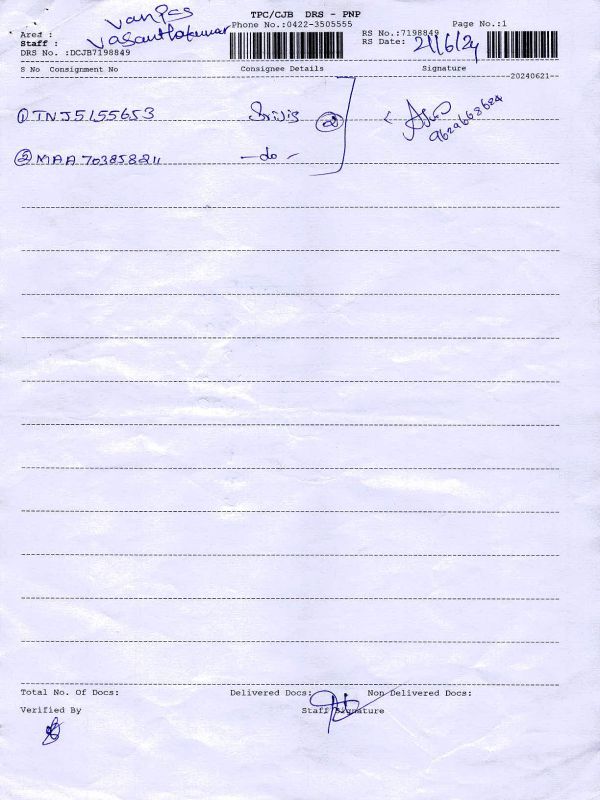 TPC/CJB DRS - PNP
Phone No.:0422-3505555 Page No.:1
Area :
Staff : Vasanthakumar
RS No.:7198849
RS Date: 21/6/24
DRS No. :DCJB7198849
S No Consignment No Consignee Details Signature
20240621
① TNJ5155653 ②
② MAA703858211 - do -
Total No. Of Docs: Delivered Docs: Non Delivered Docs:
Verified By Staff Signature